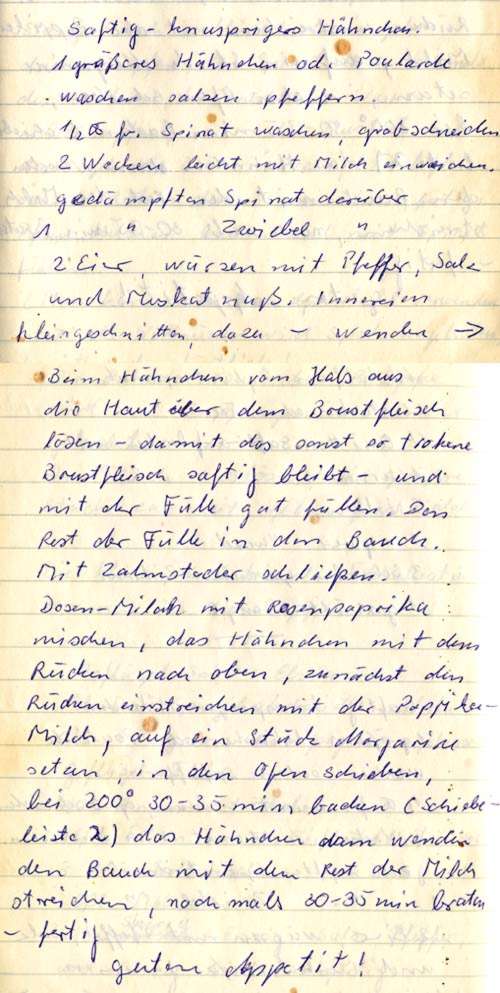 Saftig-knuspriges Hähnchen.
1 größeres Hähnchen od. Poularde
waschen salzen pfeffern.
1/2 ℔ fr. Spinat waschen, grob schneiden
2 Wecken leicht mit Milch einweichen.
gedämpften Spinat darüber
1 " Zwiebel "
2 Eier, würzen mit Pfeffer, Salz
und Muskatnuß. Innereien
kleingeschnitten, dazu – wenden →
Beim Hähnchen vom Hals aus
die Haut über dem Brustfleisch
lösen – damit das sonst so trokene
Brustfleisch saftig bleibt – und
mit der Fülle gut füllen. Den
Rest der Fülle in den Bauch.
Mit Zahnstocher schließen.
Dosen-Milch mit Rosenpaprika
mischen, das Hähnchen mit dem
Rücken nach oben, zunächst den
Rücken einstreichen mit der Paprika-
Milch, auf ein Stück Margarine
setzen, in den Ofen schieben,
bei 200° 30-35 min backen (Schiebe-
leiste 2) das Hähnchen dann wenden
den Bauch mit dem Rest der Milch
streichen, nochmals 30-35 min braten
– fertig
guten Appetit!